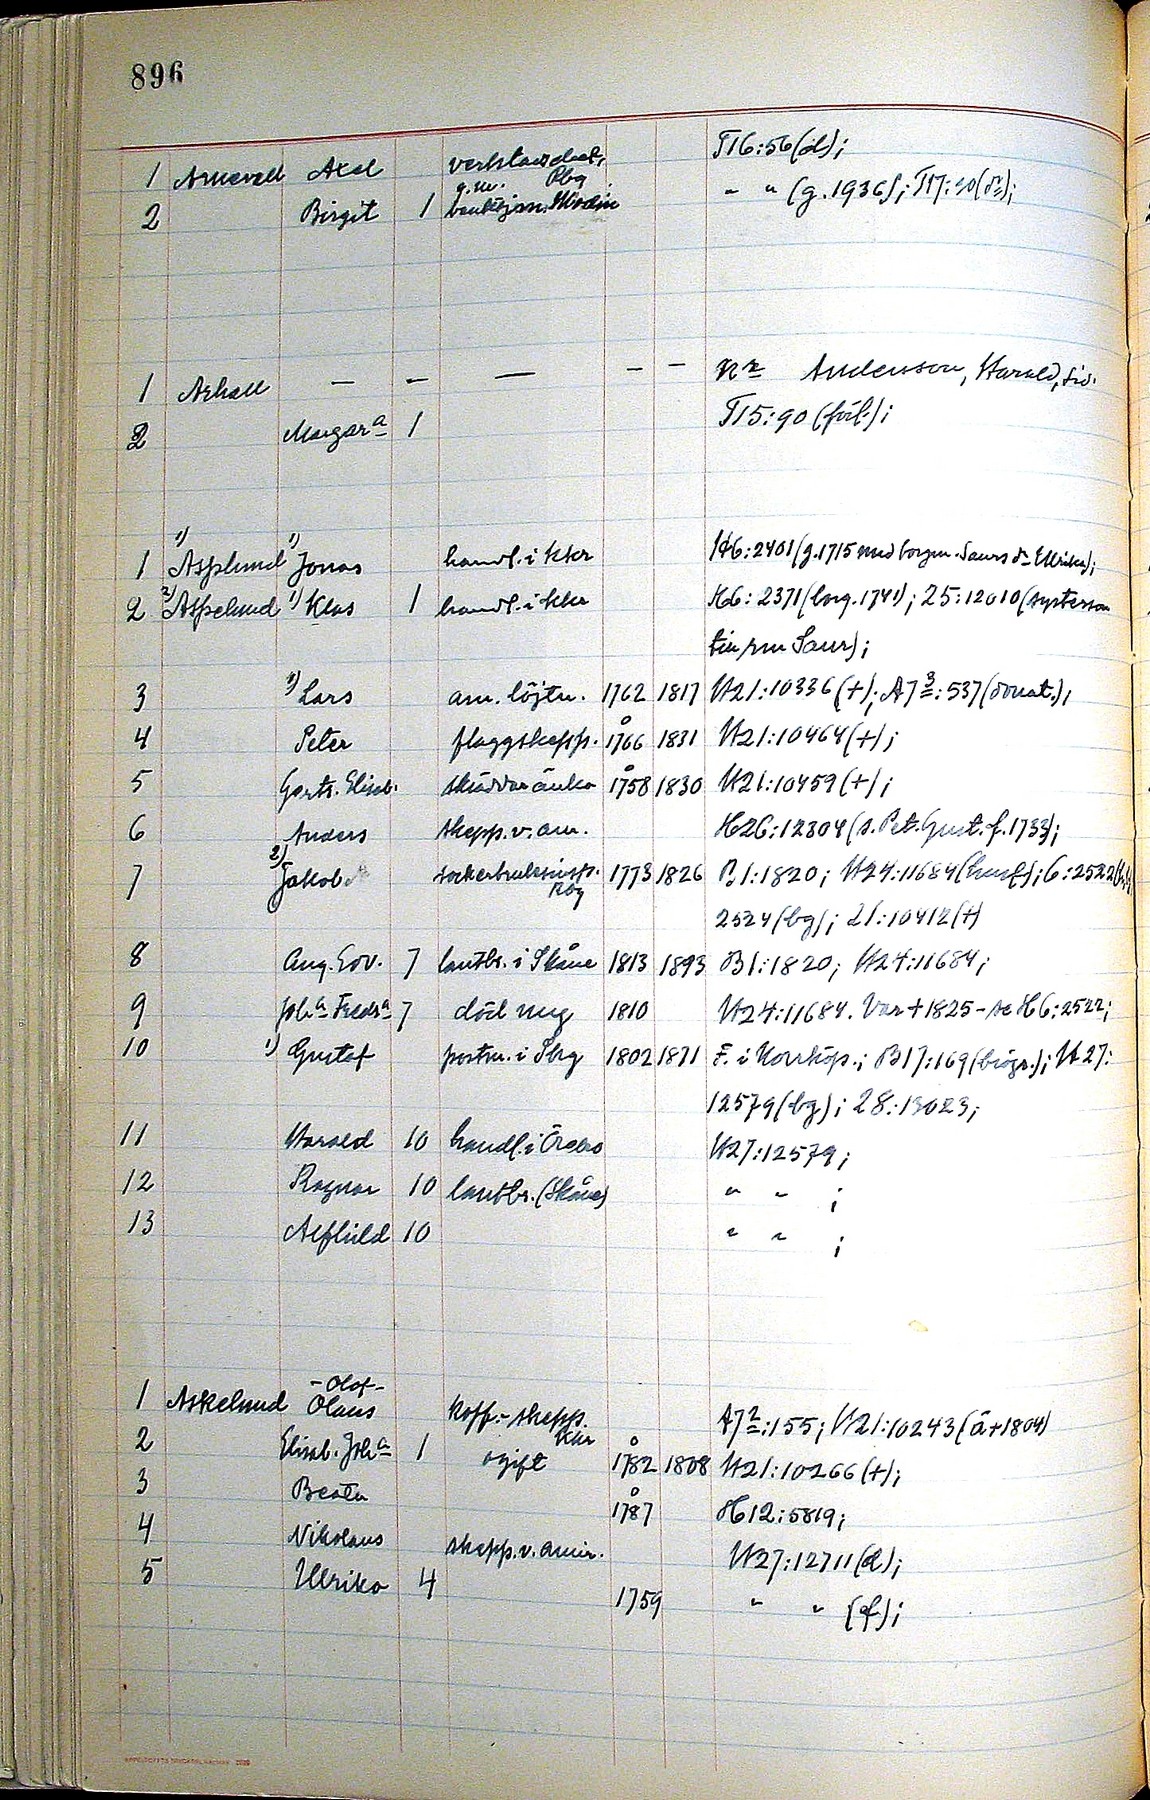 896
1 Axel T16:56(d);
g.m. Rbg
2 Birgit 1 " " (g.1936); T17:90(dr);
1 Ashall — — — — — Nr Andersson, Harald, sid.
2 Margar.a 1 T15:90 (förl.);
1 1)Asplund 1)Jonas handl. i Kkr H6:2401(g.1715 med borgm. Saurs dr Ullrika);
2 2)Aspelund 1)Klas 1 handl. i Kkr H6:2371(borg.1741); 25:12010(systerson
till Saur);
3 1)Lars am. löjtn. 1762 1817 H21:10336(+); A7 3:537(donat.);
4 Peter flaggskepp. å 1766 1831 H21:10464(+);
5 Gertr. Elisab. skräddaränka å 1758 1830 H21:10459(+);
6 Anders skepp.v.am. H26:12304(s. Pet. Gust. f.1733);
7 2)Jakob sockerbruksinsp. 1773 1826 B1:1820; H24:11684; 6:2522
Kbg 2524(bg); 21:10412(+)
8 Aug. Edv. 7 lantbr. i Skåne 1813 1893 B1:1820; H24:11684;
9 Joh.a Fredr.a 7 död ung 1810 H24:11684. Var + 1825 - se H6:2522;
10 1)Gustaf postm. i Sbg 1802 1871 F. i Norrköp.; B17:169(biogr.); H27:
12579(bg); 28:13023;
11 Harald 10 handl. i Örebro H27:12579;
12 Ragnar 10 lantbr.(Skåne) " " ;
13 Alfhild 10 " " ;
-Olof-
1 Askelund Olaus koff.-skepp. A7 2:155; H21:10243(ä+1804)
Kkr
2 Elisab. Joh.a 1 ogift å 1782 1808 H21:10266(+);
3 Beata å 1787 H12:5819;
4 Nikolaus skepp.v.amir. H27:12711(d);
5 Ulrika 4 1759 " " (f);